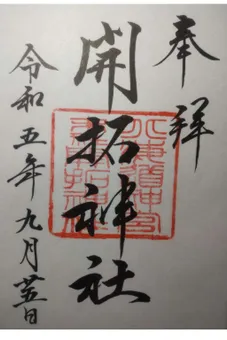 奉拝
開拓神社
令和五年九月廿五日